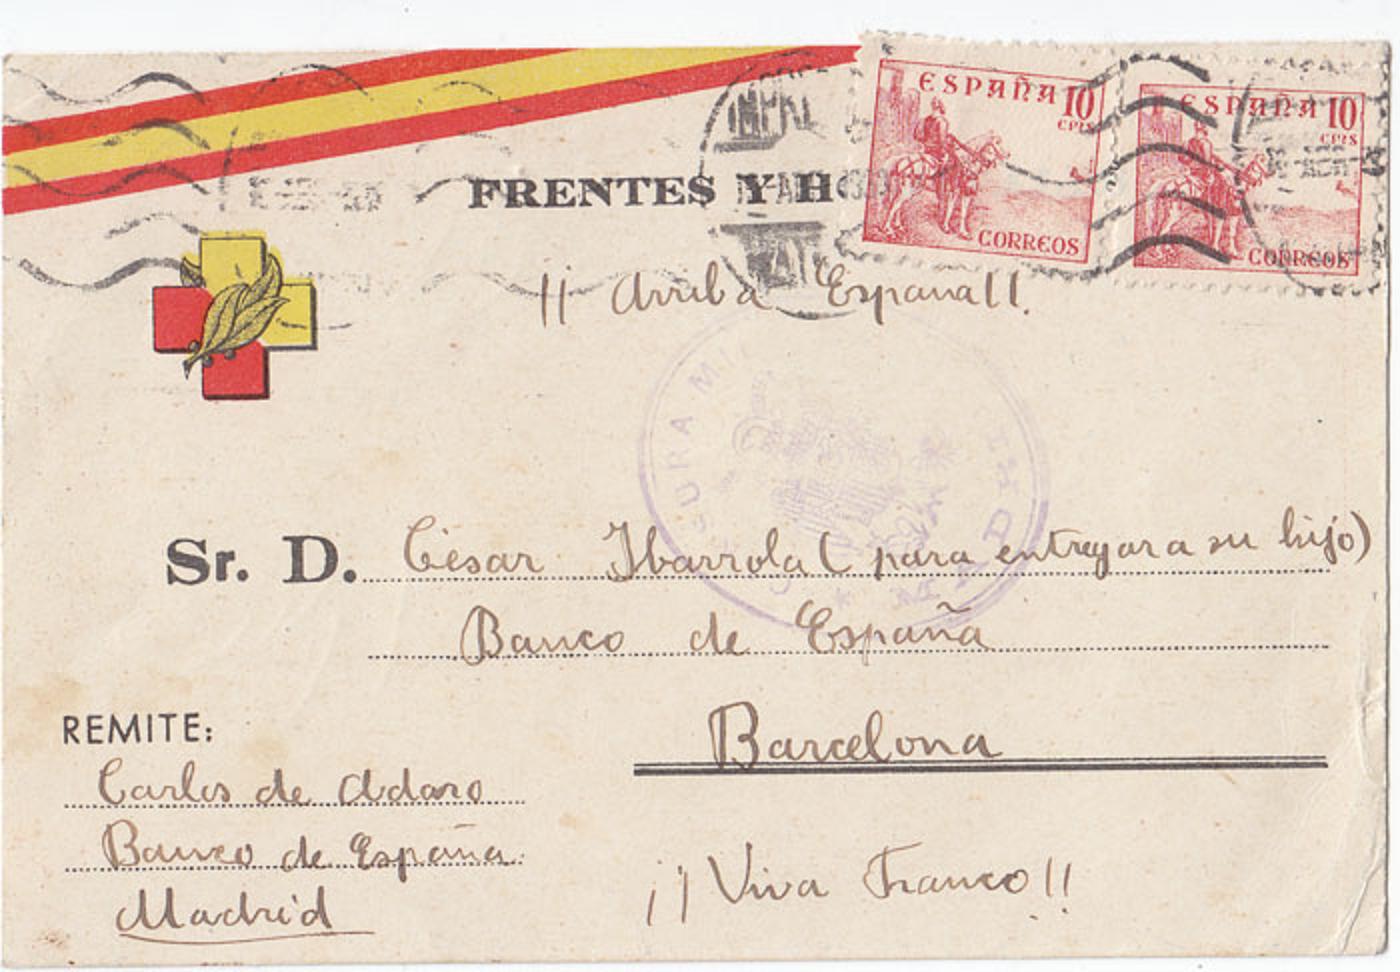 ESPAÑA 10
CTMS
CORREOS
ESPAÑA 10
CTMS
CORREOS
FRENTES Y H
¡¡ Arriba España!!
Sr. D. César Ibarrola (para entregar a su hijo)
Banco de España
Barcelona
REMITE:
Carlos de Adaro
Banco de España
Madrid
¡¡ Viva Franco!!